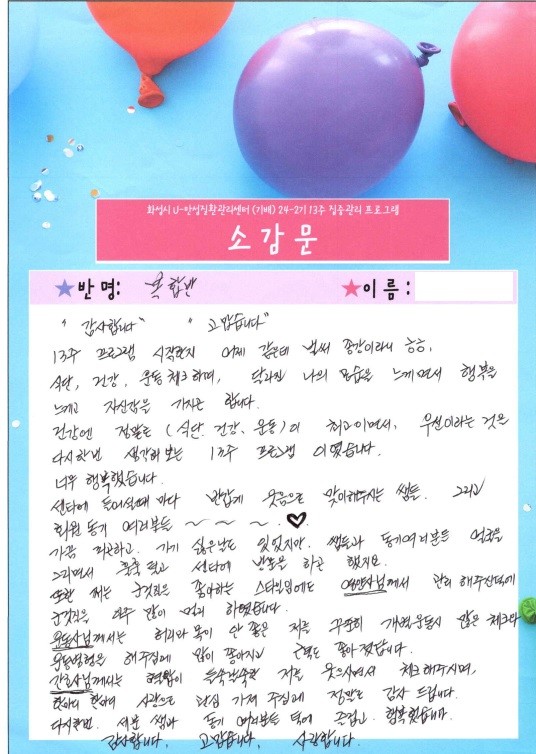 화성시 U-만성질환관리센터 (기배) 24-2기 13주 집중관리 프로그램
소감문
반 명: 복합반 이 름 :
"감사합니다" "고맙습니다"
13주 프로그램 시작한지 어제 같은데 벌써 종강이라니 ㅎㅎ,
식단, 건강, 운동 체크하며, 달라진 나의 모습을 느끼면서 행복을
느끼고 자신감을 가지곤 합니다.
건강엔 정말로 (식단. 건강. 운동)이 최고이면서, 우선이라는 것을
다시한번 생각해보는 13주 프로그램 이였습니다.
너무 행복했습니다.
센타에 들어설때 마다 반갑게 웃음으로 맞이해주시는 쌤들. 그리고
회원 동기 여러분들 ~ ~ ~. ♥.
가끔 피곤하고. 가기 싫은날도 있었지만. 쌤들과 동기여러분들 얼굴을
그리면서 훌쩍 떨고 센타에 발도장을 하곤 했지요.
또한 저는 군것질을 좋아하는 스타일임에도 영양사님께서 관리 해주신덕에
군것질을 아주 많이 멀리 하였습니다.
운동사님께서는 허리와 몸이 안 좋은 저를 꾸준히 개인운동시 많은 체크와
운동방법을 해주심에 많이 좋아지고 근력도 좋아 졌답니다.
간호사님께서는 혈압이 들쑥날쑥한 저를 웃으시면서 체크해주시며,
한마디 한마디 사랑으로 관심 가져 주심에 정말로 감사 드립니다.
다시한번. 세분 쌤과 동기 여러분들 덕에 즐겁고. 행복했습니다.
감사합니다. 고맙습니다. 사랑합니다.